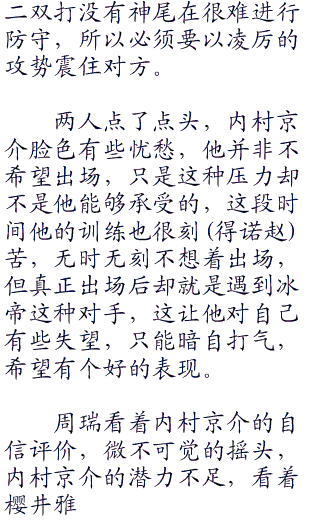 二双打没有神尾在很难进行
防守，所以必须要以凌厉的
攻势震住对方。
两人点了点头，内村京
介脸色有些忧愁，他并非不
希望出场，只是这种压力却
不是他能够承受的，这段时
间他的训练也很刻(得诺赵)
苦，无时无刻不想着出场，
但真正出场后却就是遇到冰
帝这种对手，这让他对自己
有些失望，只能暗自打气，
希望有个好的表现。
周瑞看着内村京介的自
信评价，微不可觉的摇头，
内村京介的潜力不足，看着
樱井雅